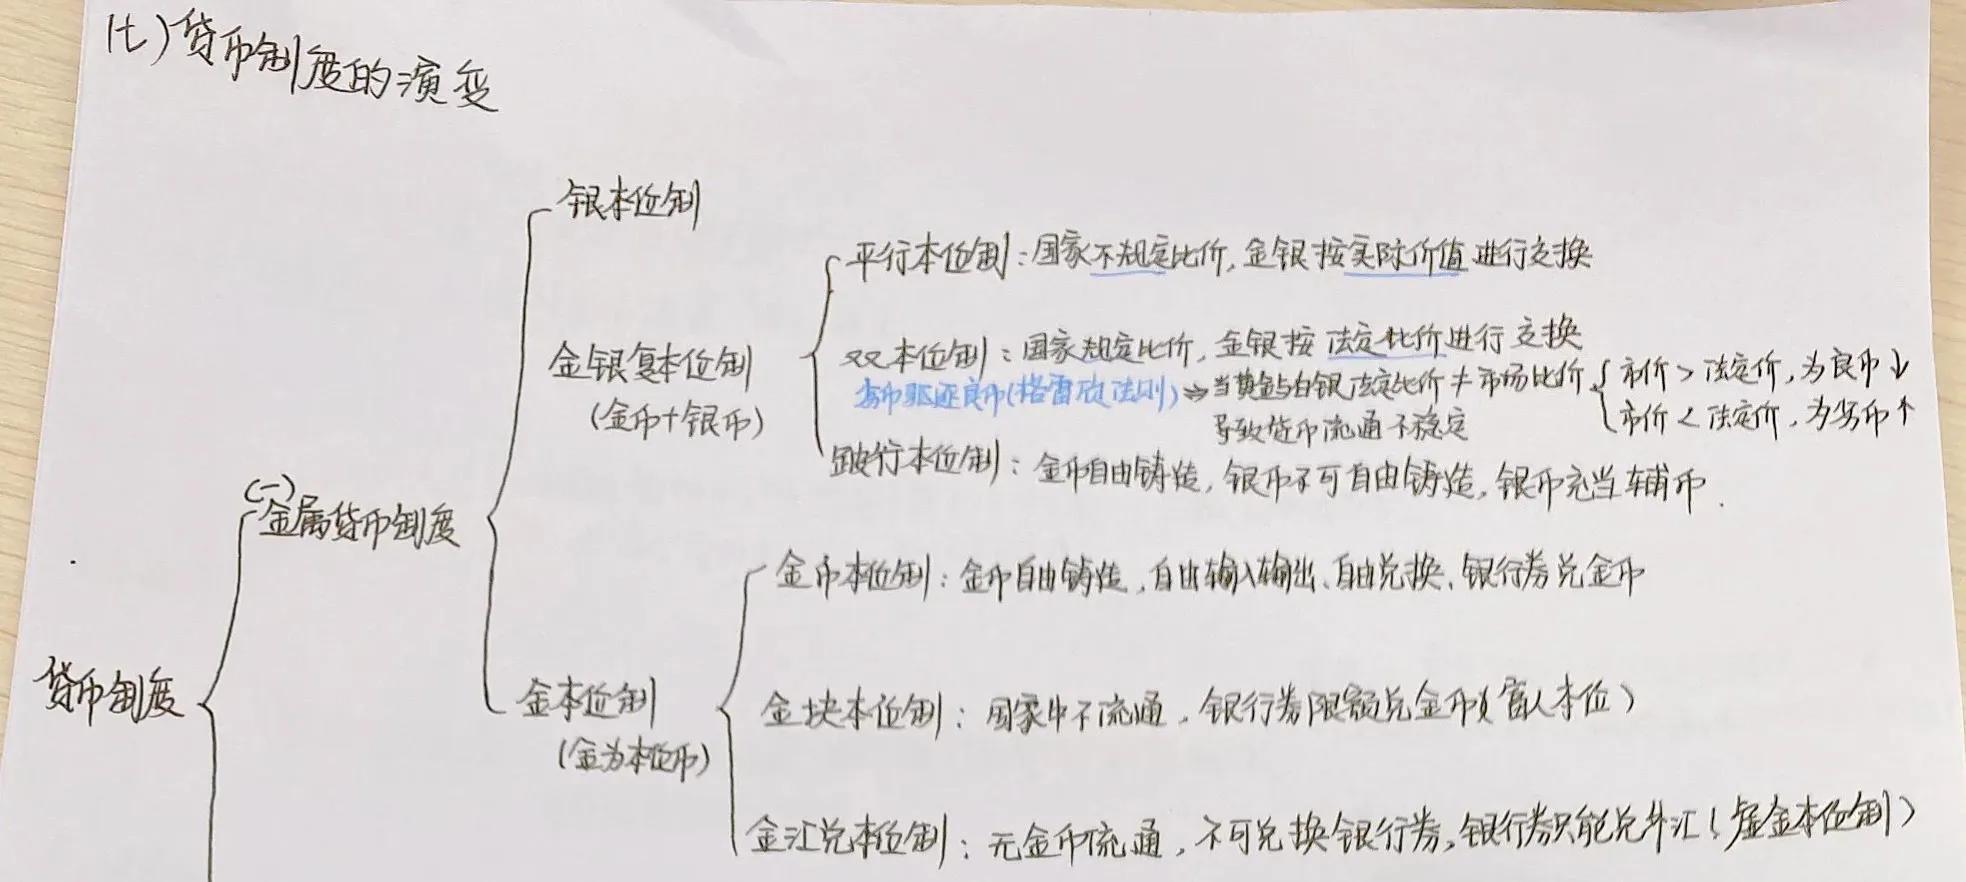 (七)货币制度的演变
银本位制
平行本位制：国家不规定比价，金银按实际价值进行交换
金银复本位制
(金币+银币)
双本位制：国家规定比价，金银按法定比价进行交换
劣币驱逐良币(格雷欣法则)⇒当黄金与白银法定比价≠市场比价{市价>法定价，为良币↓
市价<法定价，为劣币↑
导致货币流通不稳定
跛行本位制：金币自由铸造，银币不可自由铸造，银币充当辅币.
(一)金属货币制度
金币本位制：金币自由铸造、自由输入输出、自由兑换、银行券兑金币
货币制度
金本位制
(金为本位币)
金块本位制：国家中不流通，银行券限额兑金币(富人本位)
金汇兑本位制：无金币流通，不可兑换银行券，银行券只能兑外汇(虚金本位制)